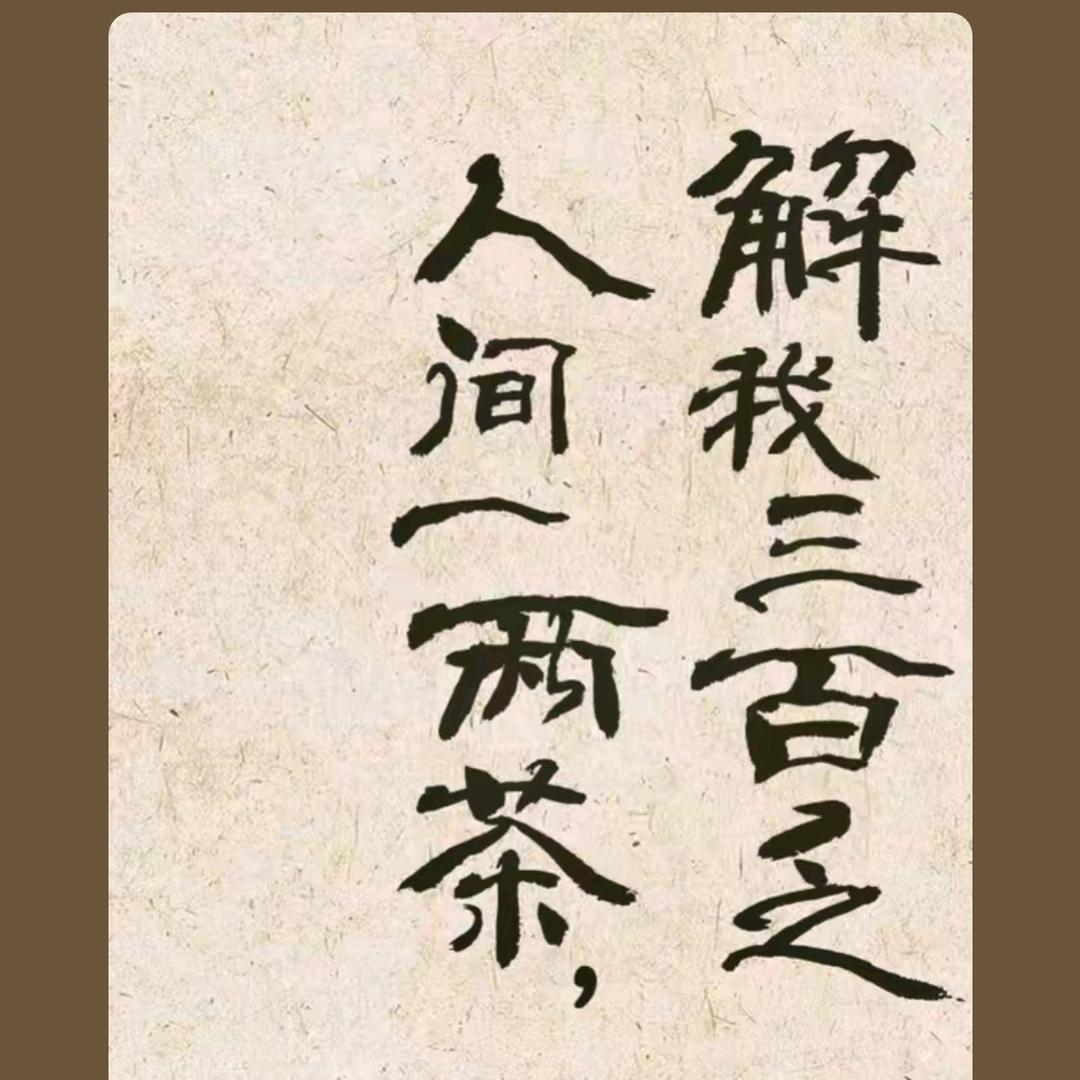 人间一两茶，
解我三百乏